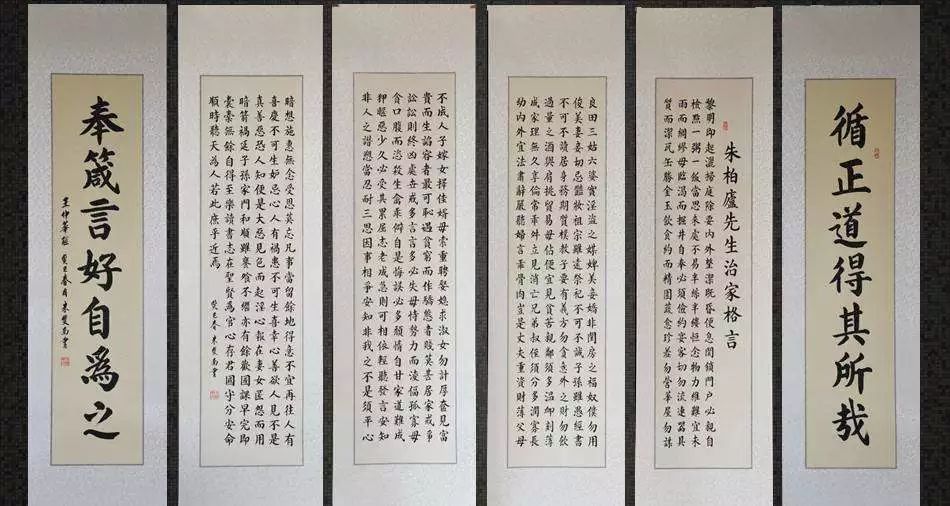 循正道得其所哉
朱柏廬先生治家格言
黎明即起灑掃庭除要内外整潔既昏便息関鎖門户必親自
檢點一粥一飯當思来處不易半絲半縷恒念物力維難宜未
雨而綢繆毋臨渴而掘井自奉必須儉約宴客切勿流連器具
質而潔瓦缶勝金玉飲食約而精園蔬愈珍羞勿營華屋勿謀
良田三姑六婆實淫盗之媒婢美妾嬌非閨房之福奴僕勿用
俊美妻妾切忌艷妝祖宗雖遠祭祀不可不誠子孫雖愚經書
不可不讀居身務期質樸教子要有義方勿貪意外之財勿飲
過量之酒與肩挑貿易毋佔便宜見貧苦親鄰須多温卹刻薄
成家理無久享倫常乖舛立見消亡兄弟叔侄須分多潤寡長
幼内外宜法肅辭嚴聽婦言乖骨肉豈是丈夫重資財薄父母
不成人子嫁女擇佳婿毋索重聘娶媳求淑女勿計厚奩見富
貴而生諂容者最可恥遇貧窮而作驕態者賤莫甚居家戒爭
訟訟則終凶處世戒多言言多必失毋恃勢力而凌偪孤寡毋
貪口腹而恣殺生禽乖僻自是悔誤必多頹惰自甘家道難成
狎暱惡少久必受其累屈志老成急則可相依輕聽發言安知
非人之譖愬當忍耐三思因事相爭安知非我之不是須平心
暗想施惠無念受恩莫忘凡事當留餘地得意不宜再往人有
喜慶不可生妒忌心人有禍患不可生喜幸心善欲人見不是
真善惡恐人知便是大惡見色而起淫心報在妻女匿怨而用
暗箭禍延子孫家門和順雖饔飧不繼亦有餘歡國課早完即
囊橐無餘自得至樂讀書志在聖賢為官心存君國守分安命
順時聽天為人若此庶乎近焉
癸巳春 朱雙南書
奉箴言好自為之
癸巳春月朱雙南書